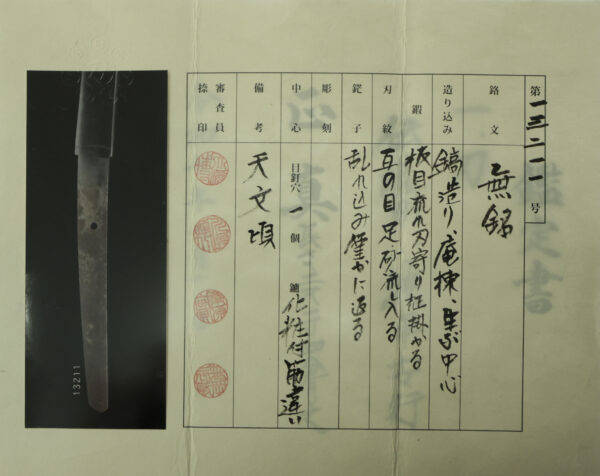 第一三二一一号
銘文 無銘
造り込み 鎬造り、庵棟、生ぶ中心
鍛 板目流れ刃寄り柾掛かる
刃紋 互の目足砂流し入る
鋩子 乱れ込み僅かに返る
彫刻
中心 目釘穴 一 個 鑢 化粧付筋違い
備考 天文頃
審査員捺印
13211